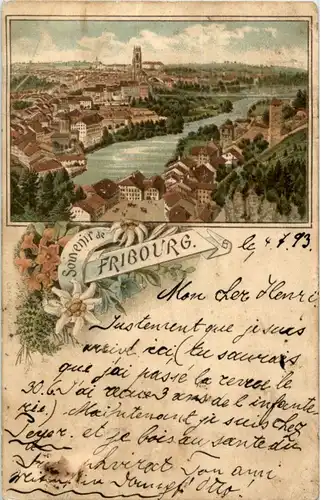 Souvenir de
FRIBOURG.
le 4. 7. 93
Mon cher Henri
Justement que je suis
ici (tu saurais
que j'ai passé la revue le
30.6. J'ai 3 ans de l'infante
rie) Maintenant je suis chez
et je bois au santé du
Ton ami
Otto!